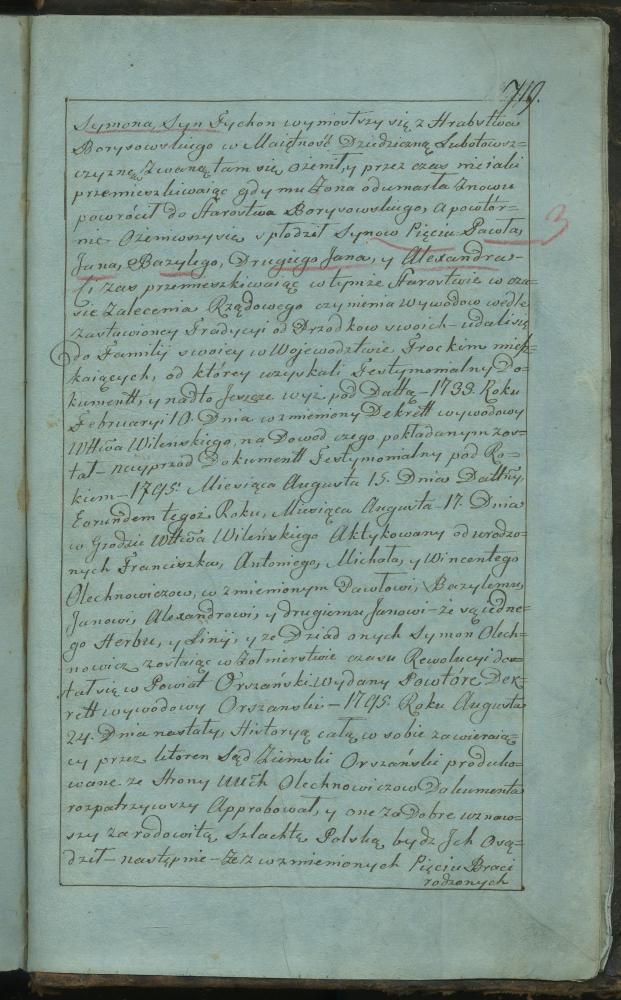 719.
Symona, Syn Tychon wyniosłszy się z Hrabstwa
Borysowskiego w Maiętność Dziedziczną Lubotowsz=
czyznę Zwaną tam się ożenił, y przez czas nieiaki
przemieszkiwaiąc gdy mu Zona odumarła Znowu
powrócił do Starostwa Borysowskiego, a powtór=
nie Ożeniwszy się spłodził Synow Pięciu Pawła, 3
Jana, Bazylego, Drugiego Jana, y Alexandra—
Ci zas przemieszkiwaiąc w tymże Starostwie w cza=
sie Zalecenia Rządowego czynienia Wywodow wedle
Zastawioney Tradycyi od Przodkow swoich—udali się
do Familij swoiey w Wojewodztwie Trockim miesz=
kaiących, od którey uzyskali Testymonialny Do=
kument, y nadto Jeszcze wyż pod Dattą—1733. Roku
Februaryi 10. Dnia wzmieniony Dekrett wywodowy
Wttwa Wilenskiego, na Dowod czego pokładanym zos=
tał—nayprzod Dokumentt Testymonialny pod Ro=
kiem—1795. Miesiąca Augusta 15. Dnia Dattny,
Eorundem tegoż Roku, Miesiąca Augusta 17. Dnia
w Grodzie Wttwa Wileńskiego Aktykowany od urodzo=
nych Franciszka, Antoniego, Michała, y Wincentego
Olechnowiczow, wzmienionym Pawłowi, Bazylemu,
Janowi, Alexandrowi, y drugiemu Janowi—że są iedne=
go Herbu, y Linij, y ze Dziad onych Symon Olech=
nowicz zostaiąc w Żołnierstwie czasu Rewolucyi dos=
tał się w Powiat Orszański wydany Powtóre Dek=
rett wywodowy Orszanski—1795. Roku Augusta
24. Dnia nastały, Historyą całą w sobie zawieraią=
cy przez ktoren Sąd Ziemski Orszański produko=
wane ze Strony Uuch Olechnowiczow Dokumenta
rozpatrzywszy Approbował, y one za Dobre uznaw=
szy za rodowitą Szlachtę Polską bydz Jch Osą=
dził—następnie—Że z wzmienionych Pięciu Braci
rodzonych